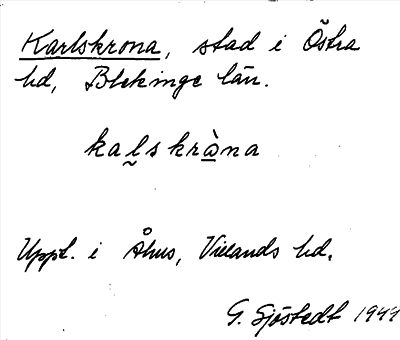 Karlskrona, stad i Östra
hd, Blekinge län.
kalskràna
Uppt. i Åhus, Villands hd.
G. Sjöstedt 1944